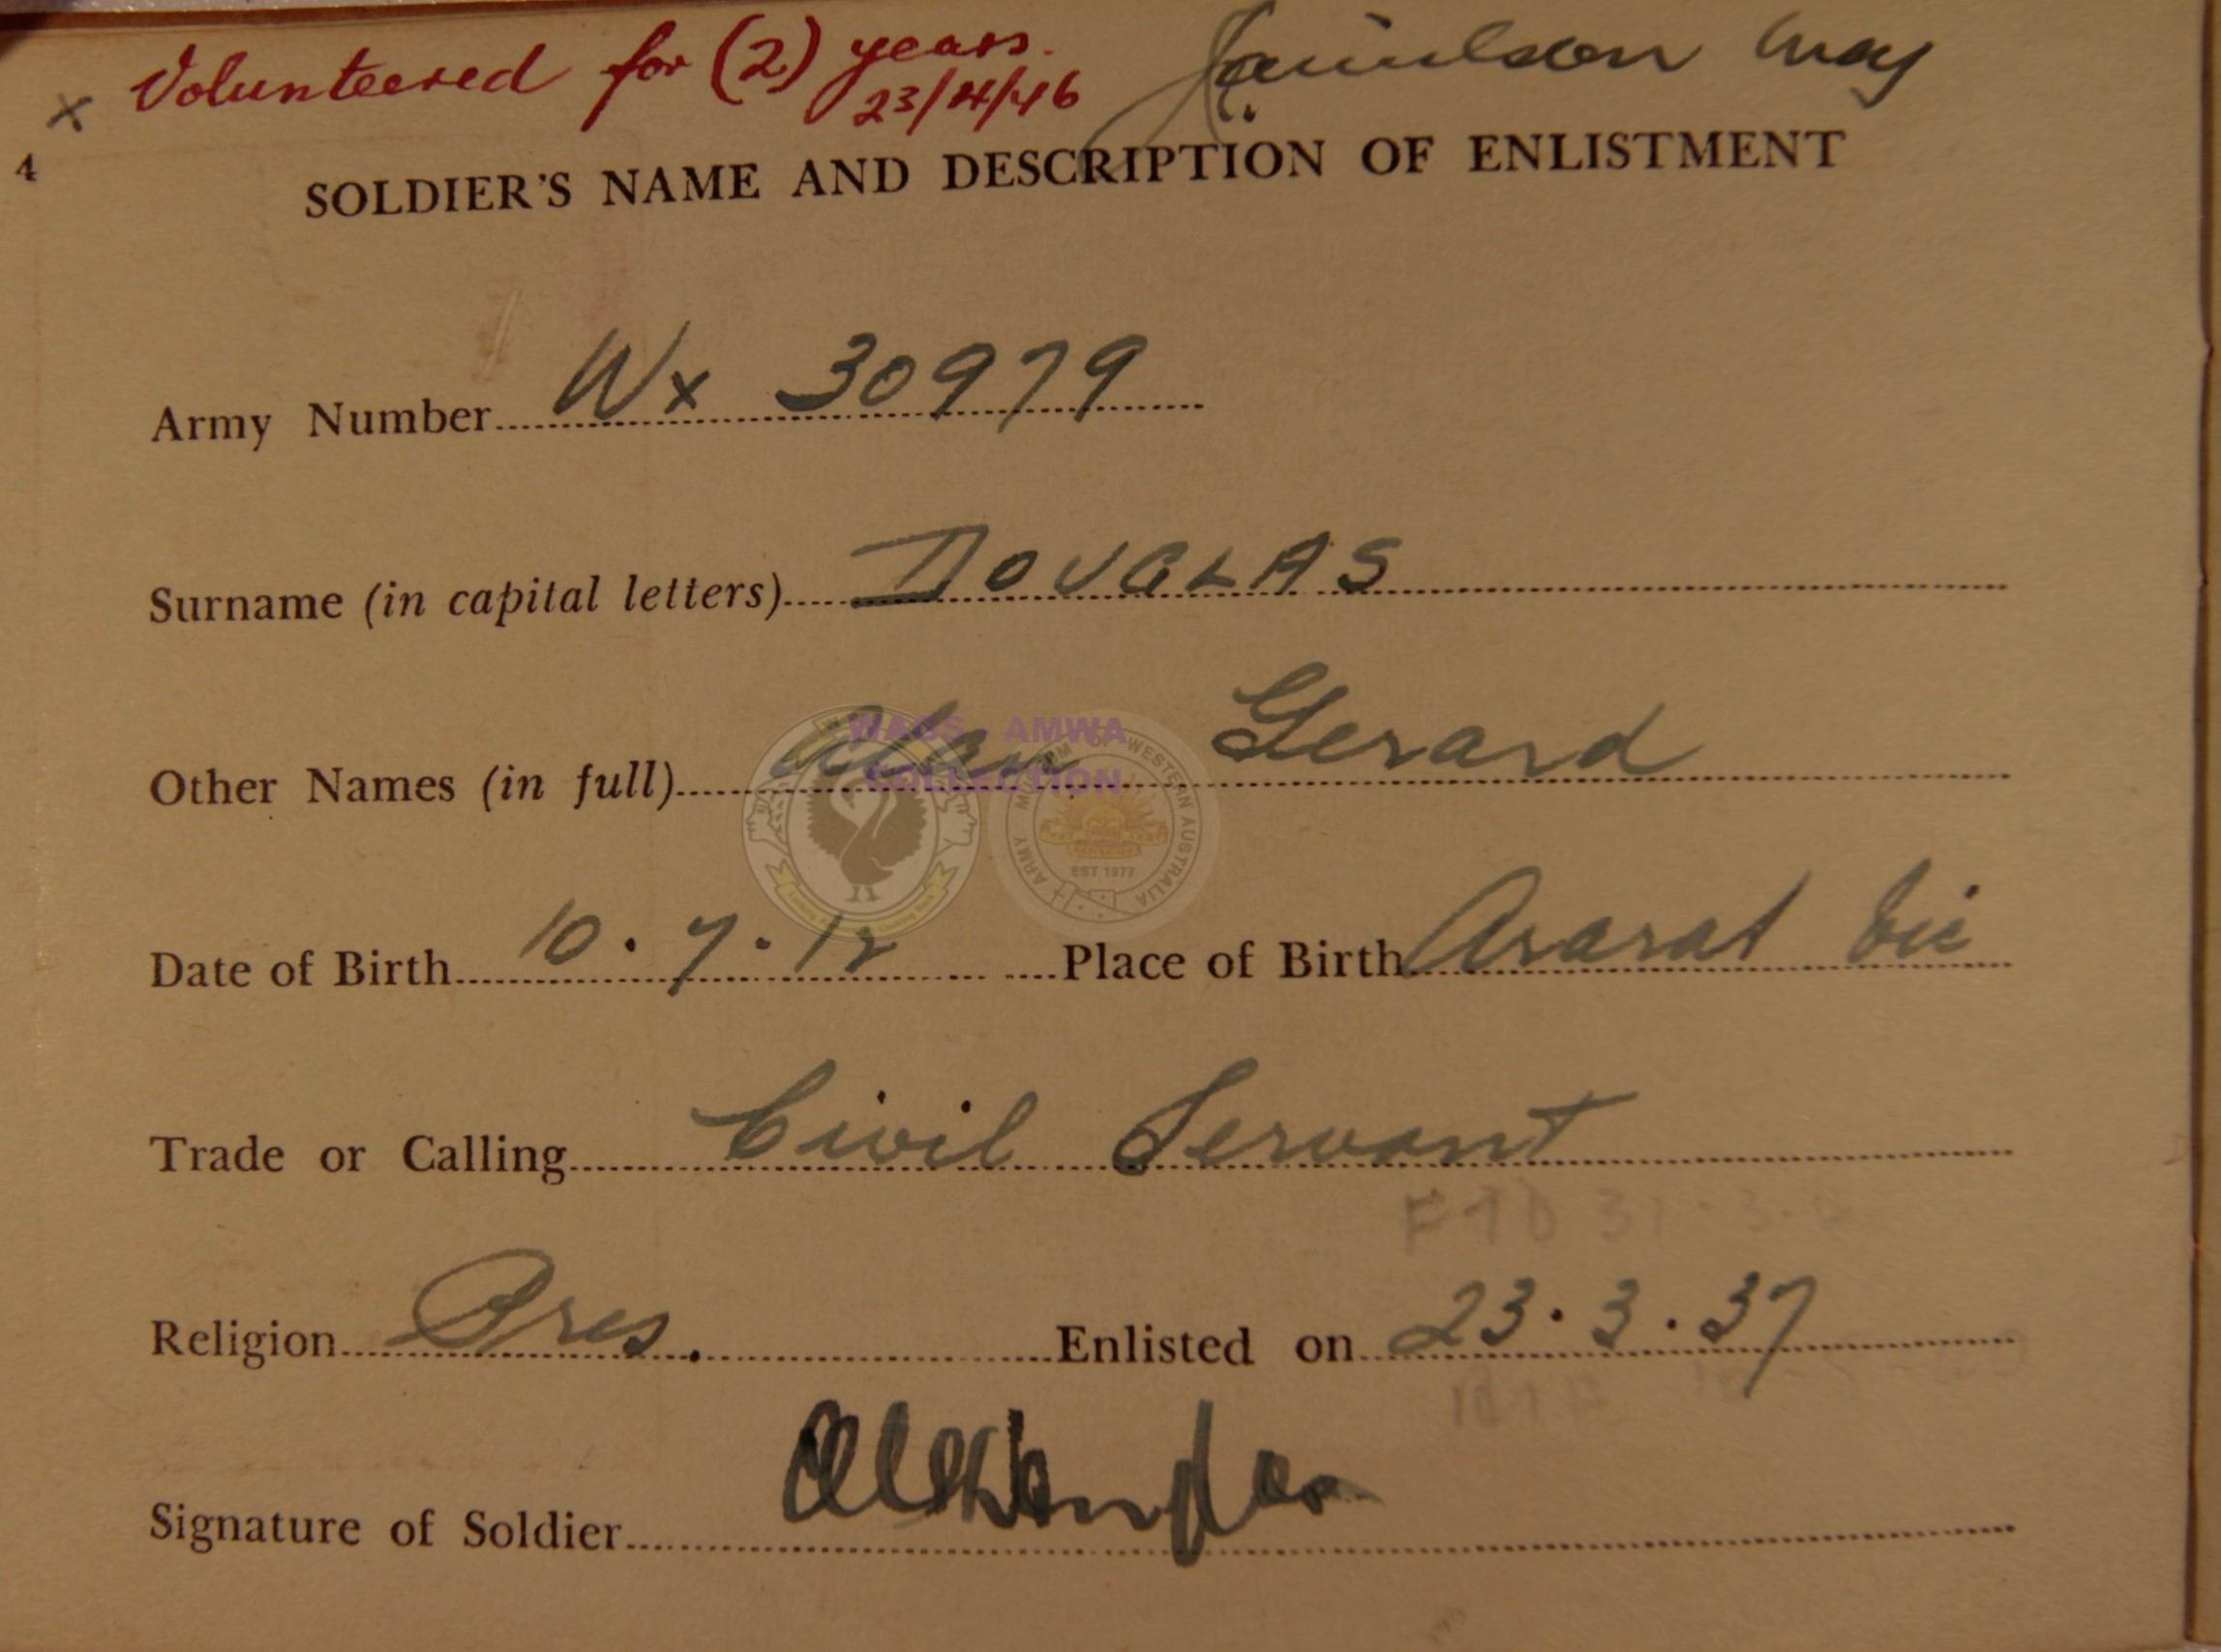 x Volunteered for (2) years.
23/4/46
4
SOLDIER'S NAME AND DESCRIPTION OF ENLISTMENT
Army Number Wx 30979
Surname (in capital letters) DOUGLAS
Other Names (in full) Gerard
WAGS AMWA
COLLECTION
ARMY MUSEUM OF WESTERN AUSTRALIA
EST 1977
Date of Birth 10.7.12 Place of Birth Ararat Vic
Trade or Calling Civil Servant
Religion Pres. Enlisted on 23.3.37
Signature of Soldier